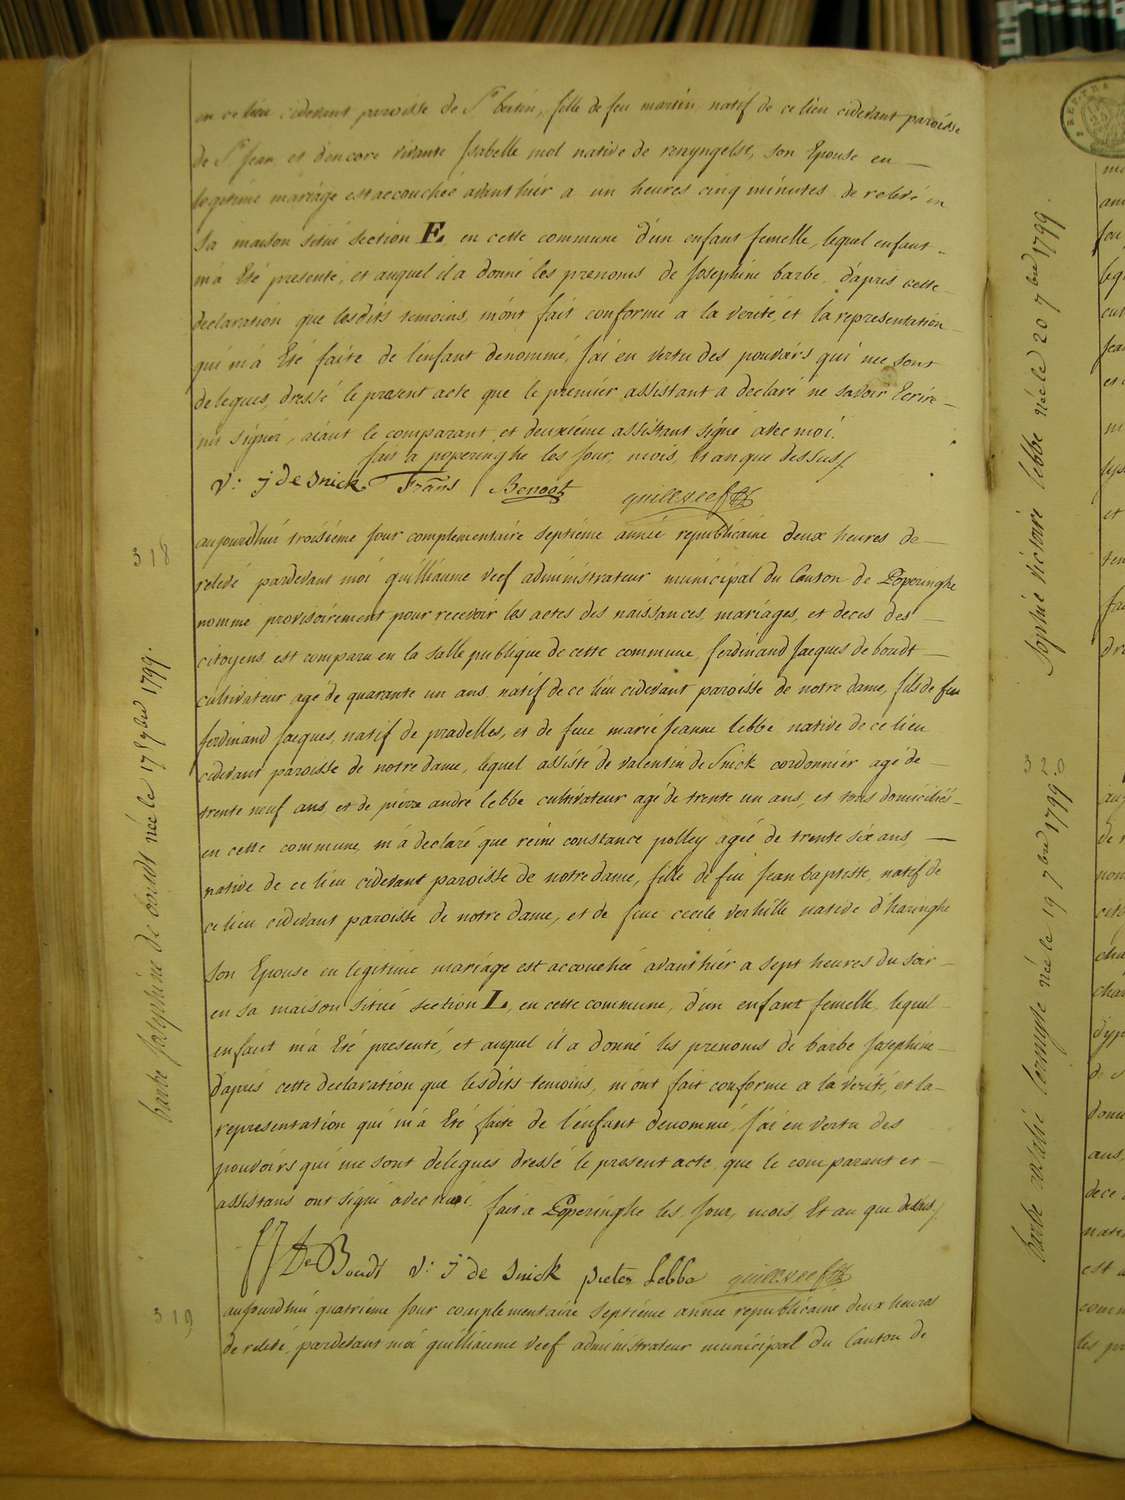 en ce lieu cidevant paroisse de St bertin, fille de feu martin natif de ce lieu cidevant paroisse
de St Jean, et d'encore vivante Isabelle mol native de renyngelst, son Epouse en
legitime mariage est accouchée avanthier a un heures cinq minutes de relevé en
sa maison situé section E en cette commune d'un enfant femelle, lequel enfant
m'a Eté presenté, et auquel il a donné les prenoms de Josephine barbe, d'apres cette
declaration que lesdits temoins, m'ont fait conforme a la verité, et la representation
qui m'a Eté faite de l'enfant denommé, J'ai en vertu des pouvoirs qui me sont
delegues, dressé le present acte que le premier assistant a declaré ne savoir Ecrire
ni signer, aiant le comparant et deuxieme assistant signé avec moi.
fait a poperinghe les Jour, mois, et an que dessus
V: j De Snick Frans Benoot guill veef
318
aujourdhui troisieme Jour complementaire septieme année republicaine deux heures de
relevé pardevant moi guilliaume veef administrateur municipal du Canton de Poperinghe
nommé provisoirement pour recevoir les actes des naissances, mariages, et deces des
citoyens, est comparu en la salle publique de cette commune, ferdinand Jacques de boudt
cultivateur agé de quarante un ans, natif de ce lieu cidevant paroisse de notre dame, fils de feu
ferdinand Jacques, natif de pradelles, et de feue marie Jeanne lebbe native de ce lieu
cidevant paroisse de notre dame, lequel assisté de valentin de Snick cordonnier agé de
trente neuf ans, et de pierre andre lebbe cultivateur agé de trente un ans, et tous domiciliés
en cette commune, m'a declaré que reine constance polley agée de trente six ans
native de ce lieu cidevant paroisse de notre dame, fille de feu Jean baptiste, natif de
ce lieu cidevant paroisse de notre dame, et de feue cecile verhille native d'haringhe
son Epouse en legitime mariage est accouchée avanthier a sept heures du soir
en sa maison situé section L, en cette commune, d'un enfant femelle, lequel
enfant m'a Eté presenté, et auquel il a donné les prenoms de barbe Josephine
d'apres cette declaration que lesdits temoins, m'ont fait conforme a la verité, et la
representation qui m'a Eté faite de l'enfant denommé, J'ai en vertu des
pouvoirs qui me sont delegues dressé le present acte, que le comparant et
assistans ont signé avec moi. fait a Poperinghe les Jour, mois, Et an que dessus
FJ De Boudt V: j de Snick pieter Lebbe guill veef
barbe Josephine de boudt née le 17 7bre 1799.
319
aujourdhui quatrieme Jour complementaire septieme année republicaine deux heures
de relevé, pardevant moi guilliaume veef administrateur municipal du Canton de
Sophie victoire lebbe née le 20 7bre 1799.
320